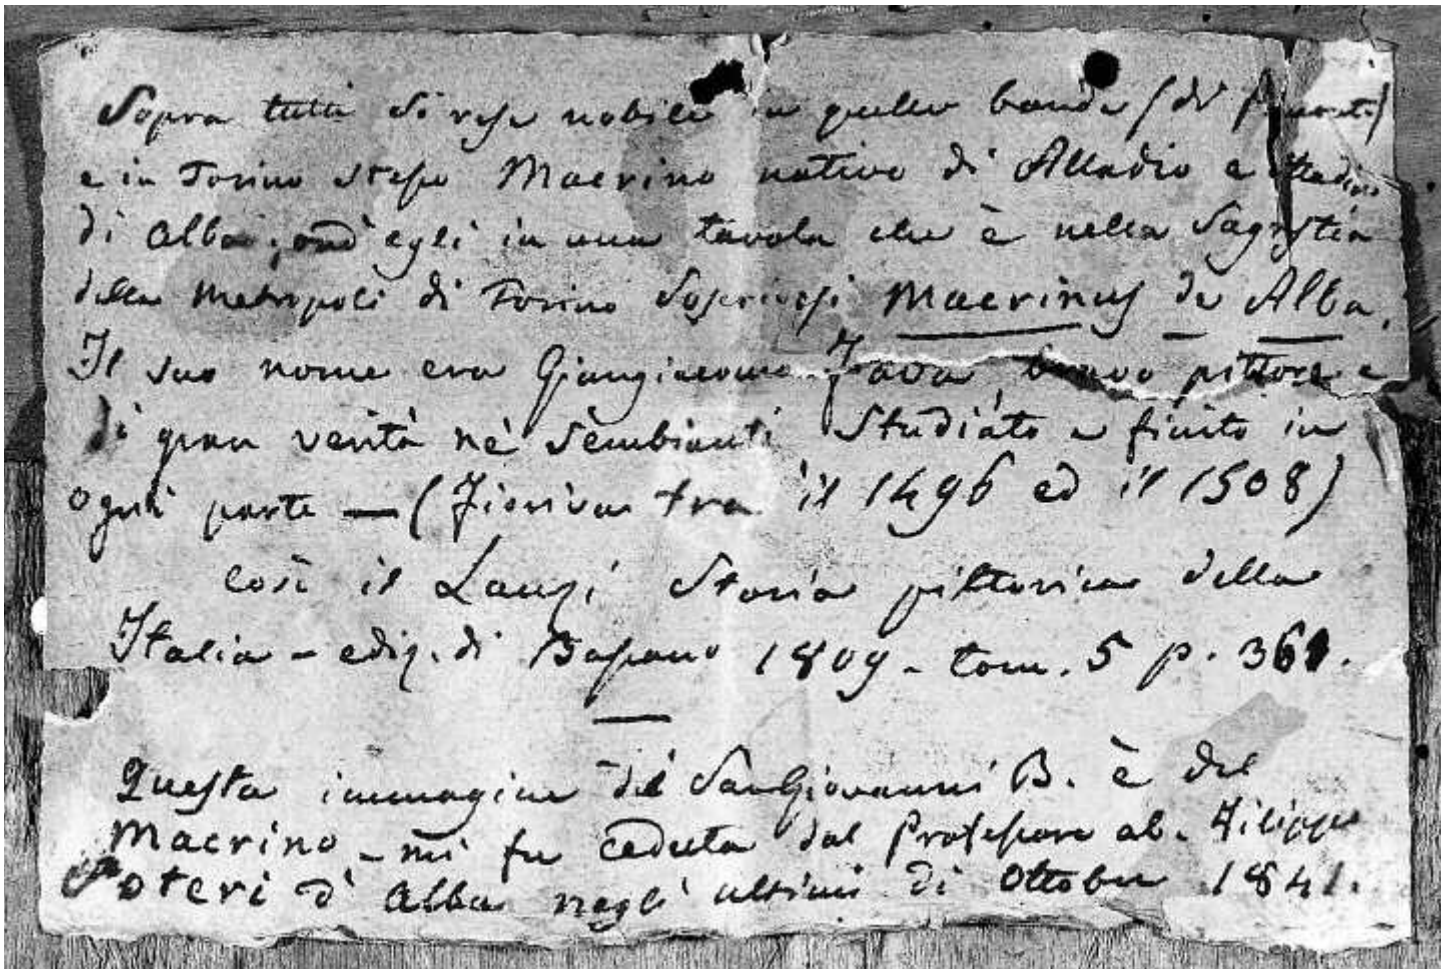 Sopra tutti si rese nobile in quelle bande (di
e in Torino stesso Macrino nativo di Alladio e
di Alba; ond' egli in una tavola che è nella Sagrestia
della Metropoli di Torino soscrivesi Macrinus de Alba.
Il suo nome era Giangiacomo Fava, bravo pittore e
di gran verità nè sembianti studiato e finito in
ogni parte — (Fioriva tra il 1496 ed il 1508)
così il Lanzi Storia pittorica della
Italia - ediz. di Bassano 1809 - tom. 5 p. 361.
Questa immagine del San Giovanni B. è del
Macrino - mi fu ceduta dal Professore ab. Filippo
d' Alba negli ultimi di Ottobre 1841.